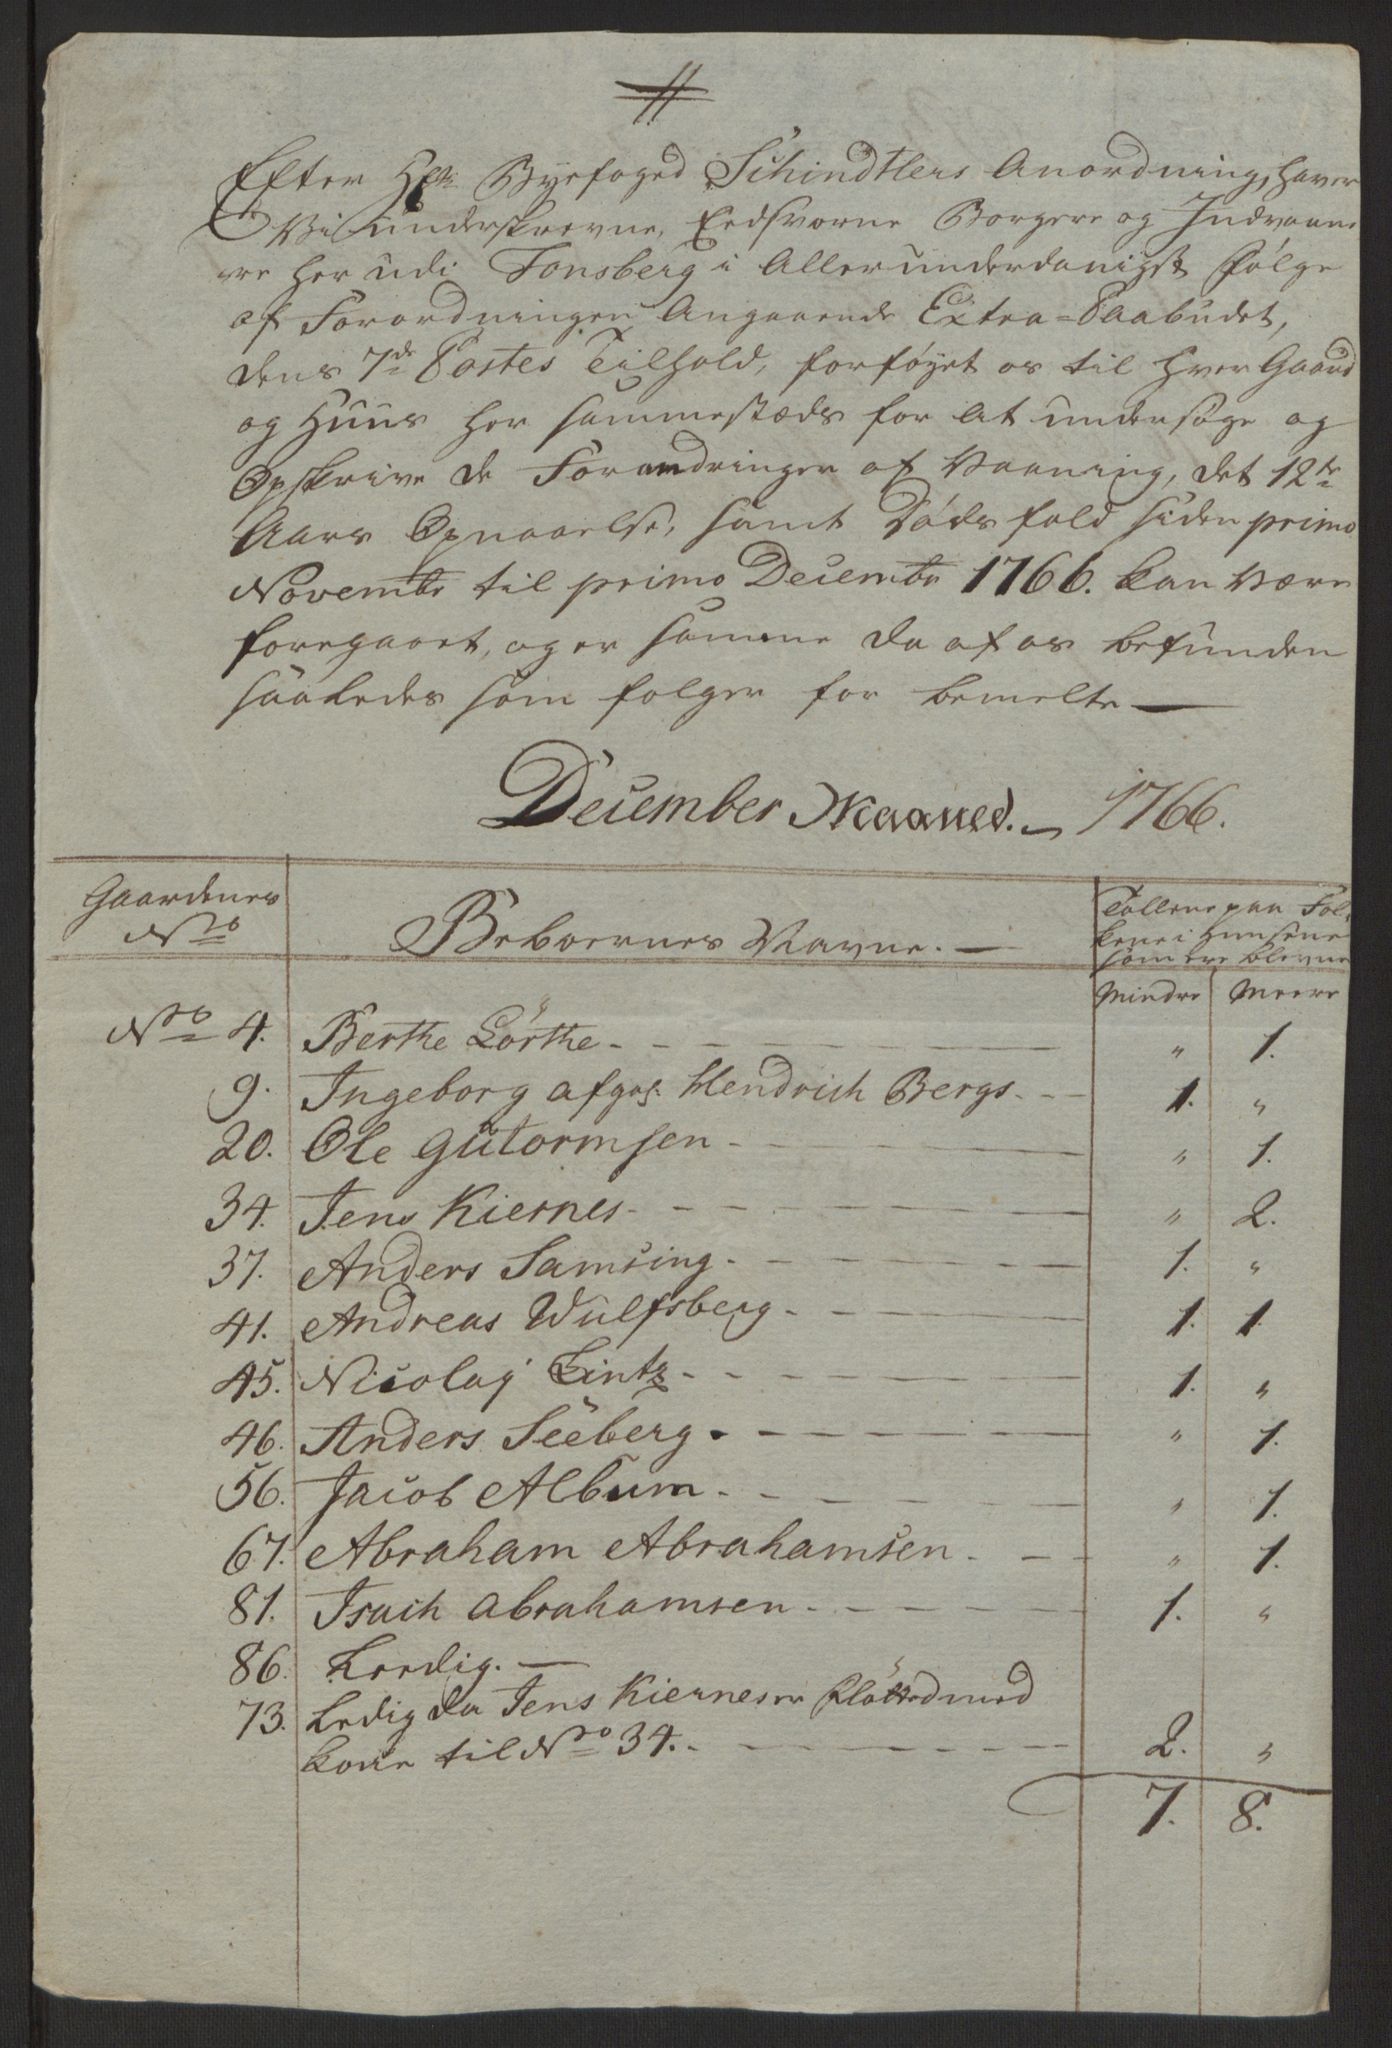 Efter Hr. Byefoged Schindtlers Anordning, haver
Vi underskrevne, Eedsvorne Borgere og Indvaane
re her udi Tonsberg i Allerunderdanigst følge
af Forordningen Angaaende Extra=Paabudet,
dens 7de Postes Tilhold, forføyet os til hver Gaard
og Huus her sammestæds for at undersøge og
Opskrive de Forandringer af Vaaning, det 12te
Aars Opnaaelse, samt Døds fald siden primo
Novembr til primo Decembr 1766. kan være
foregaaet, og er samme da af os befunden
saaledes som følger for bemelte —
December Maaned. 1766.
Gaardenes No
Beboernes Navne. —
Tallene paa Fol-
kene i Huusene
som ere blevne
Mindre Meere
No 4. Berthe Lörthe " 1.
9. Ingeborg afgs. Hendrich Bergs 1. "
20. Ole Gutormsen " 1.
34. Jens Kiernes " 2.
37. Anders Samsing 1. "
41. Andreas Wulfsberg 1. 1
45. Nicolaj Lintz 1. "
46. Anders Seeberg " 1.
56. Jacob Album " 1.
67. Abraham Abrahamsen " 1.
81. Isach Abrahamsen 1. "
86. Leedig. —
73. Ledig da Jens Kiernes er fløtted med
kone til No 34. 2. "
7. 8.